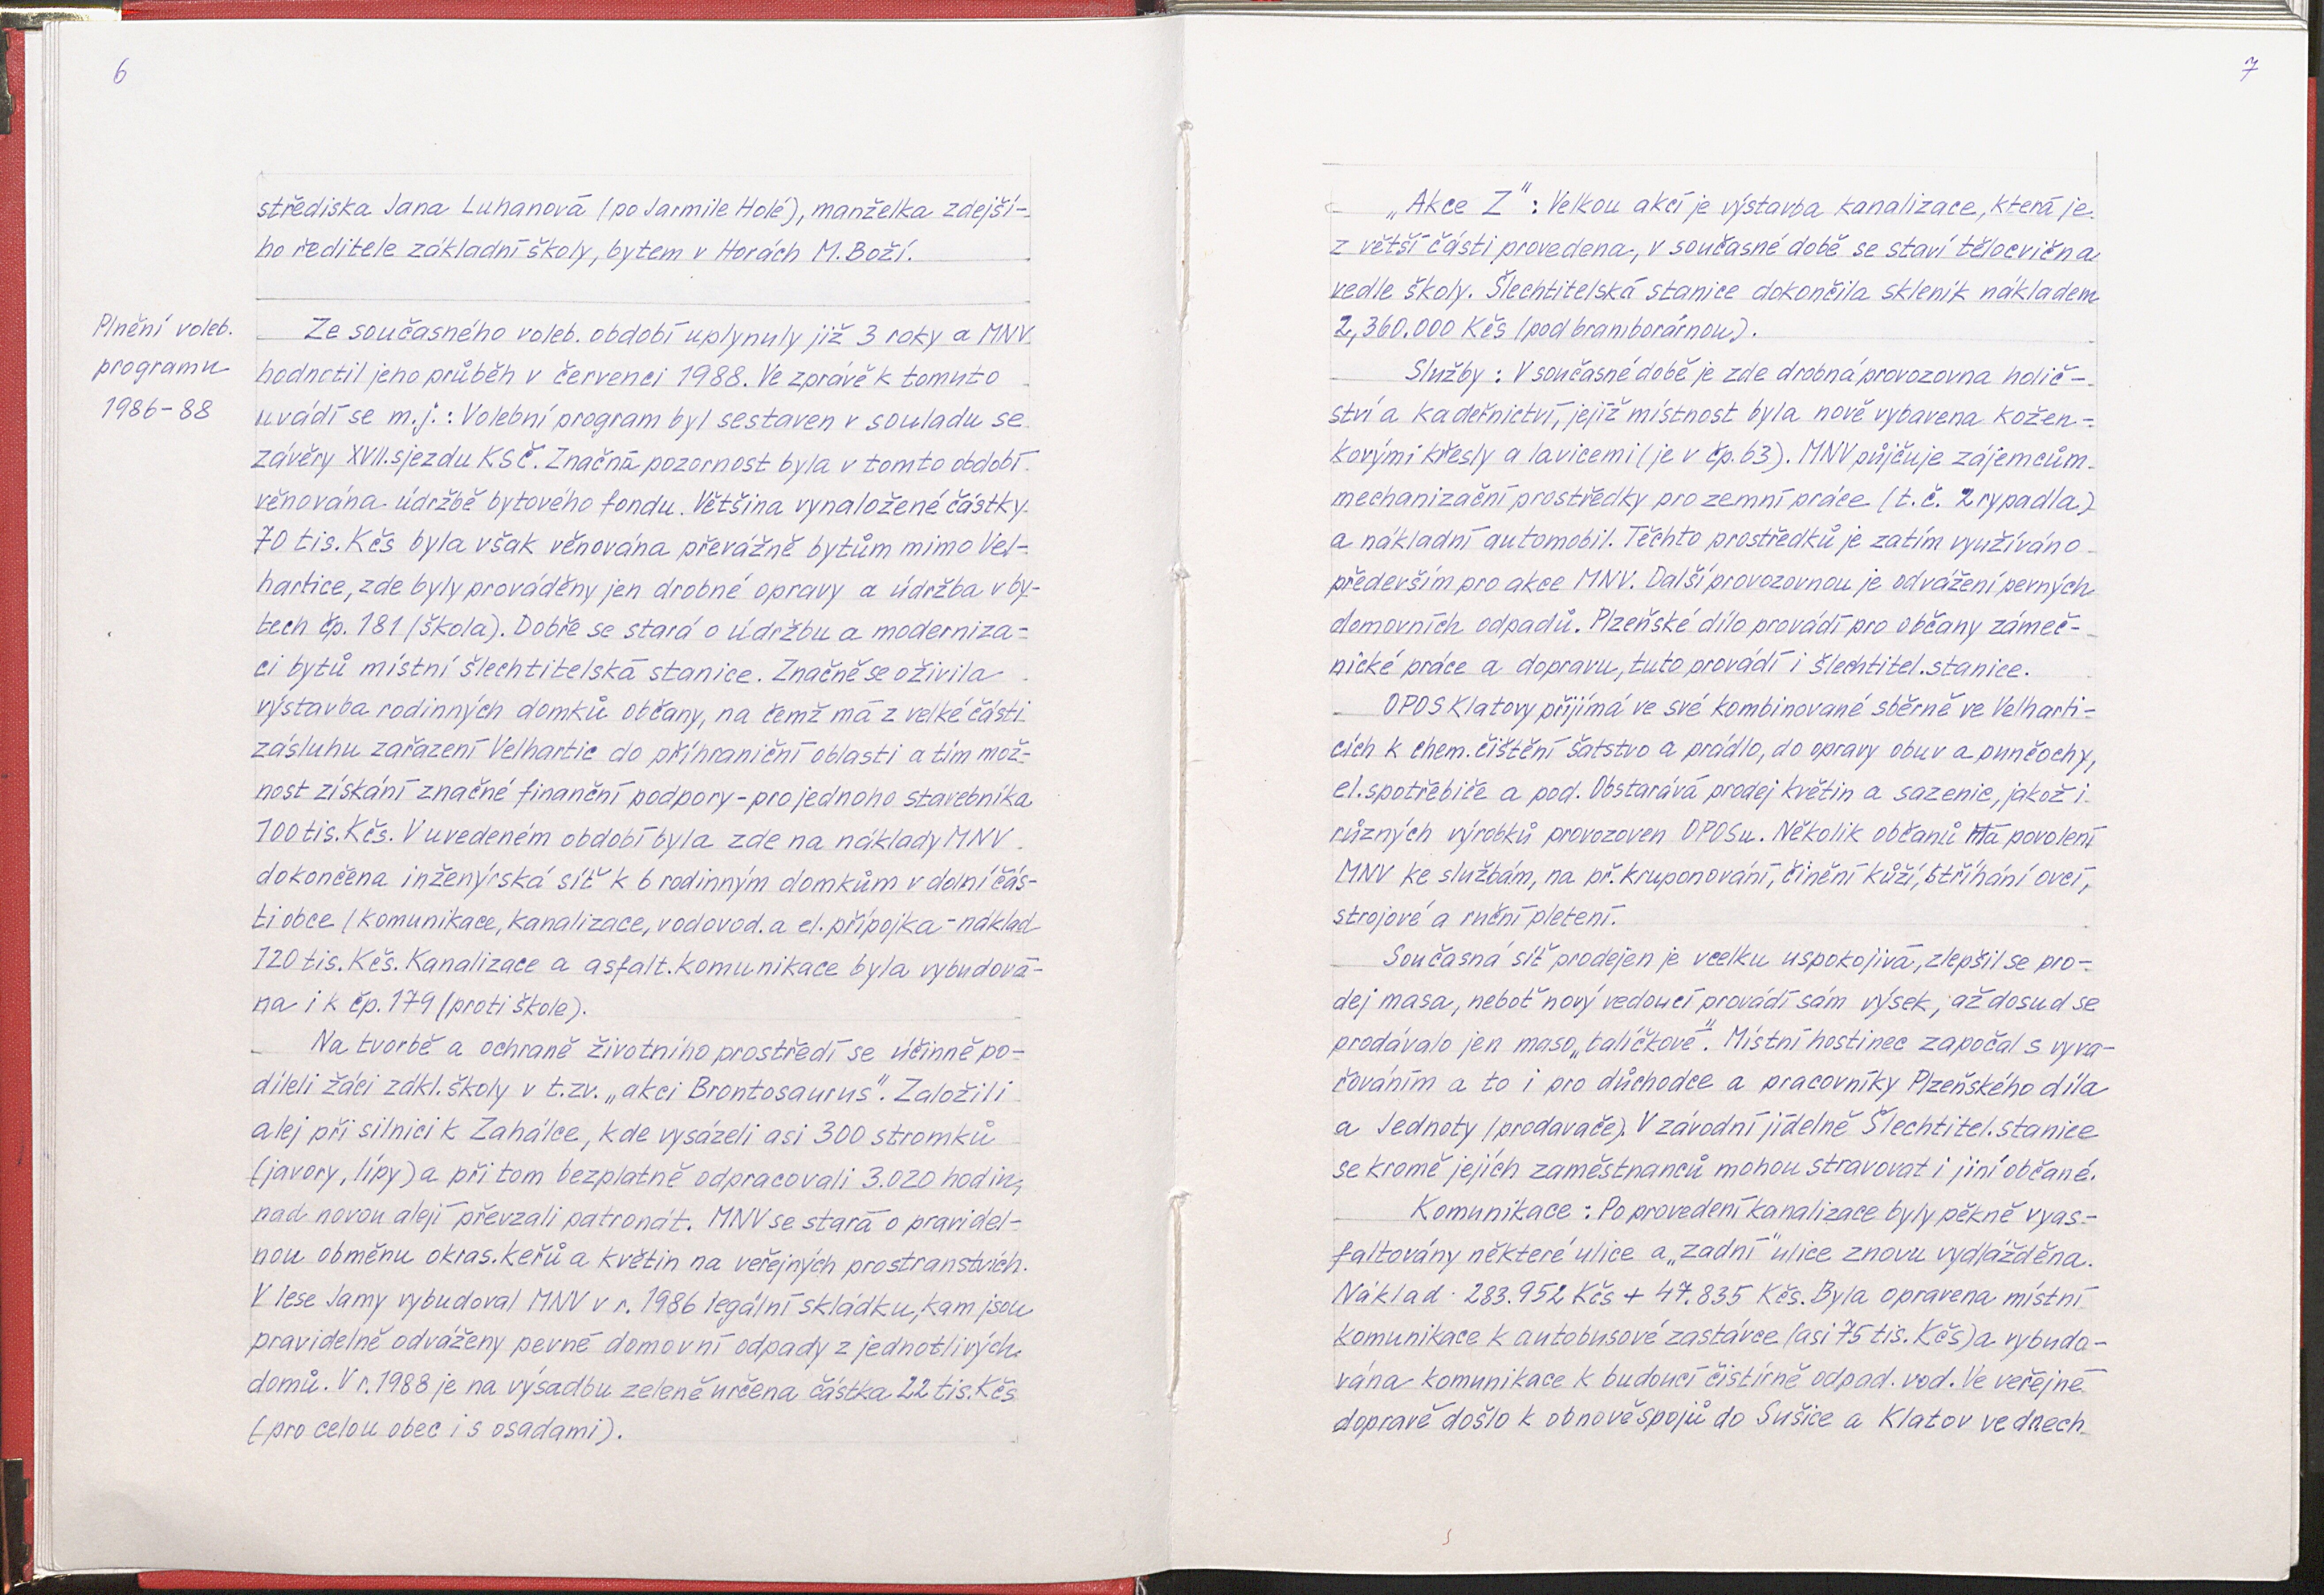 6
střediska Jana Luhanová (po Jarmile Holé), manželka zdejší-
ho ředitele základní školy, bytem v Horách M. Boží.
Plnění voleb.
programu
1986-88
Ze současného voleb. období uplynuly již 3 roky a MNV
hodnotil jeho průběh v červenci 1988. Ve zprávě k tomuto
uvádí se m.j.: Volební program byl sestaven v souladu se
závěry XVII. sjezdu KSČ. Značná pozornost byla v tomto období
věnována údržbě bytového fondu. Většina vynaložené částky
70 tis. Kčs byla však věnována převážně bytům mimo Vel-
hartice, zde byly prováděny jen drobné opravy a údržba v by-
tech čp. 181 (škola). Dobře se stará o údržbu a moderniza-
ci bytů místní šlechtitelská stanice. Značně se oživila
výstavba rodinných domků občany, na čemž má z velké části
zásluhu zařazení Velhartic do příhraniční oblasti a tím mož-
nost získání značné finanční podpory - pro jednoho stavebníka
100 tis. Kčs. V uvedeném období byla zde na náklady MNV
dokončena inženýrská síť k 6 rodinným domkům v dolní čás-
ti obce (komunikace, kanalizace, vodovod. a el. přípojka - náklad
120 tis. Kčs. Kanalizace a asfalt. komunikace byla vybudová-
na i k čp. 179 (proti škole).
Na tvorbě a ochraně životního prostředí se účinně po-
díleli žáci zákl. školy v t.zv. „akci Brontosaurus". Založili
alej při silnici k Zahálce, kde vysázeli asi 300 stromků
(javory, lípy) a při tom bezplatně odpracovali 3.020 hodin,
nad novou alejí převzali patronát. MNV se stará o pravidel-
nou obměnu okras. keřů a květin na veřejných prostranstvích.
V lese Jamy vybudoval MNV v r. 1986 legální skládku, kam jsou
pravidelně odváženy pevné domovní odpady z jednotlivých
domů. V r. 1988 je na výsadbu zeleně určena částka 22 tis. Kčs
(pro celou obec i s osadami).
7
„Akce Z": Velkou akcí je výstavba kanalizace, která je
z větší části provedena, v současné době se staví tělocvična
vedle školy. Šlechtitelská stanice dokončila skleník nákladem
2,360.000 Kčs (pod bramborárnou).
Služby: V současné době je zde drobná provozovna holič-
ství a kadeřnictví, jejíž místnost byla nově vybavena kožen-
kovými křesly a lavicemi (je v čp. 63). MNV půjčuje zájemcům
mechanizační prostředky pro zemní práce (t.č. 2 rypadla)
a nákladní automobil. Těchto prostředků je zatím využíváno
především pro akce MNV. Další provozovnou je odvážení pevných
domovních odpadů. Plzeňské dílo provádí pro občany zámeč-
nické práce a dopravu, tuto provádí i šlechtitel. stanice.
OPOS Klatovy přijímá ve své kombinované sběrně ve Velharti-
cích k chem. čištění šatstvo a prádlo, do opravy obuv a punčochy,
el. spotřebiče a pod. Obstarává prodej květin a sazenic, jakož i
různých výrobků provozoven OPOSu. Několik občanů má povolení
MNV ke službám, na př. kruponování, činění kůží, stříhání ovcí,
strojové a ruční pletení.
Současná síť prodejen je vcelku uspokojivá, zlepšil se pro-
dej masa, neboť nový vedoucí provádí sám výsek, až dosud se
prodávalo jen maso „talíčkové". Místní hostinec započal s vyva-
řováním a to i pro důchodce a pracovníky Plzeňského díla
a Jednoty (prodavače). V závodní jídelně Šlechtitel. stanice
se kromě jejích zaměstnanců mohou stravovat i jiní občané.
Komunikace: Po provedení kanalizace byly pěkně vyas-
faltovány některé ulice a „zadní" ulice znovu vydlážděna.
Náklad 283.952 Kčs + 47.835 Kčs. Byla opravena místní
komunikace k autobusové zastávce (asi 75 tis. Kčs) a vybudo-
vána komunikace k budoucí čistírně odpad. vod. Ve veřejné
dopravě došlo k obnově spojů do Sušice a Klatov ve dnech